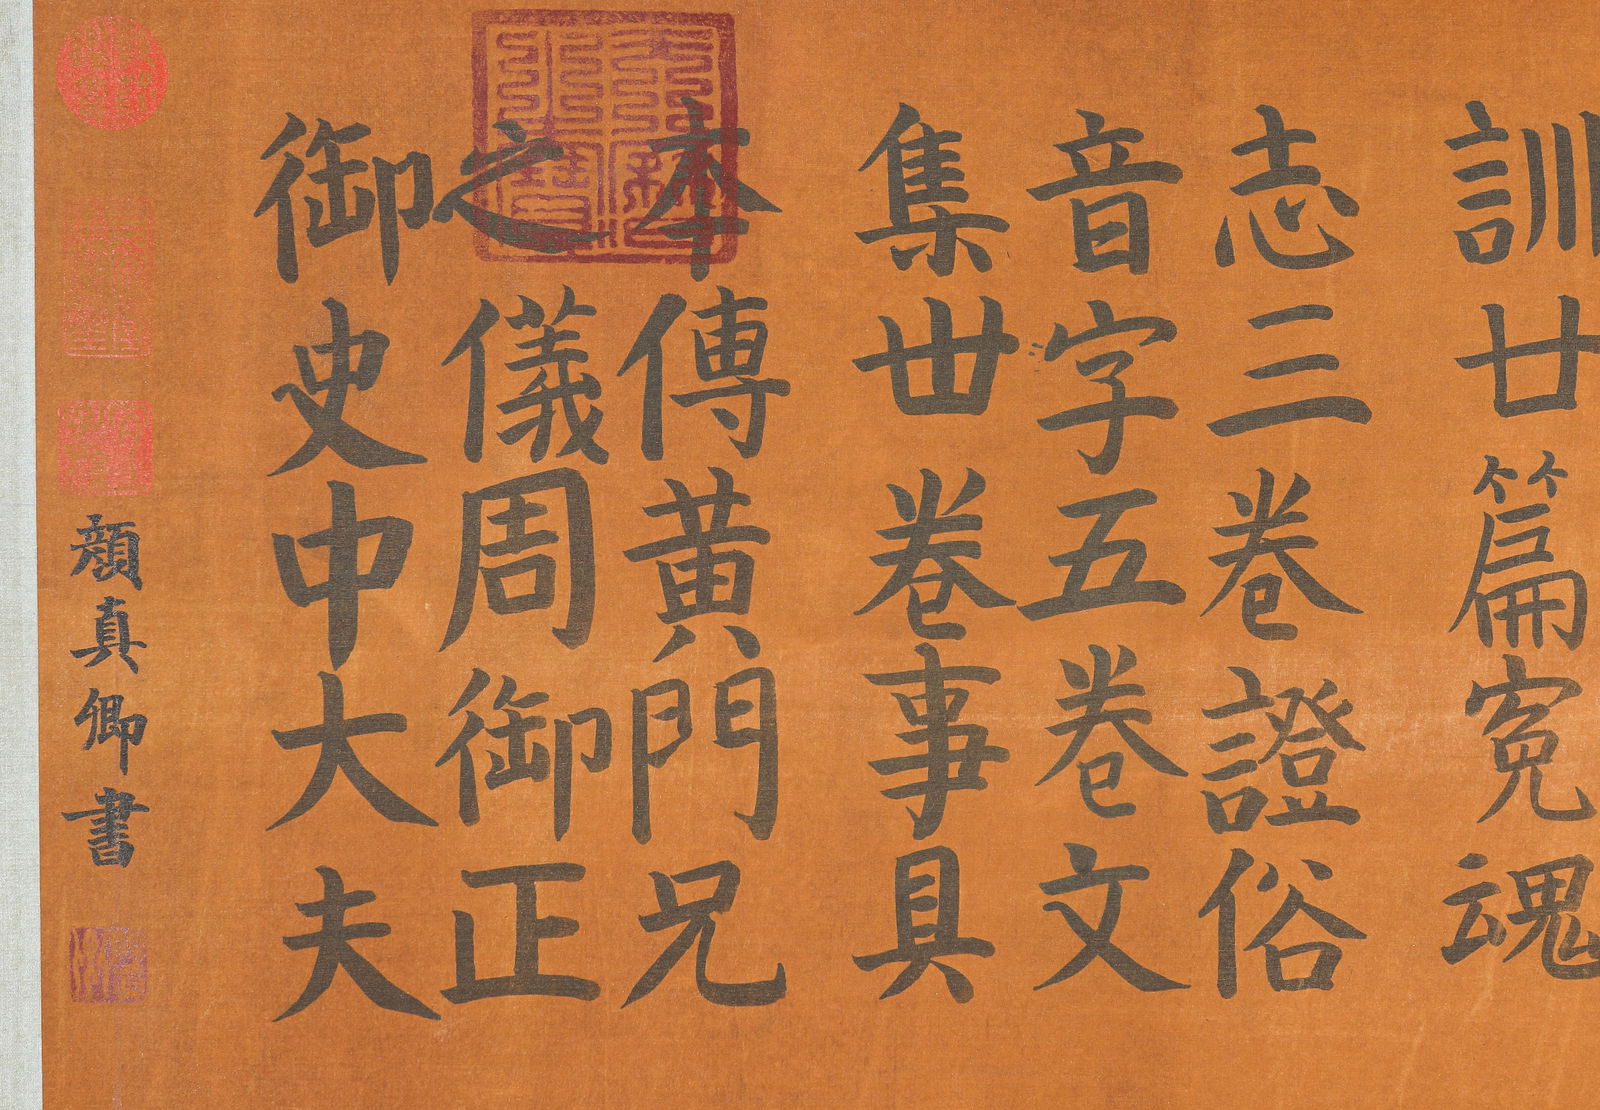 訓廿篇寃魂
志三卷證俗
音字五卷文
集丗卷事具
本傳黄門兄
之儀周御正
御史中大夫
顔真卿書